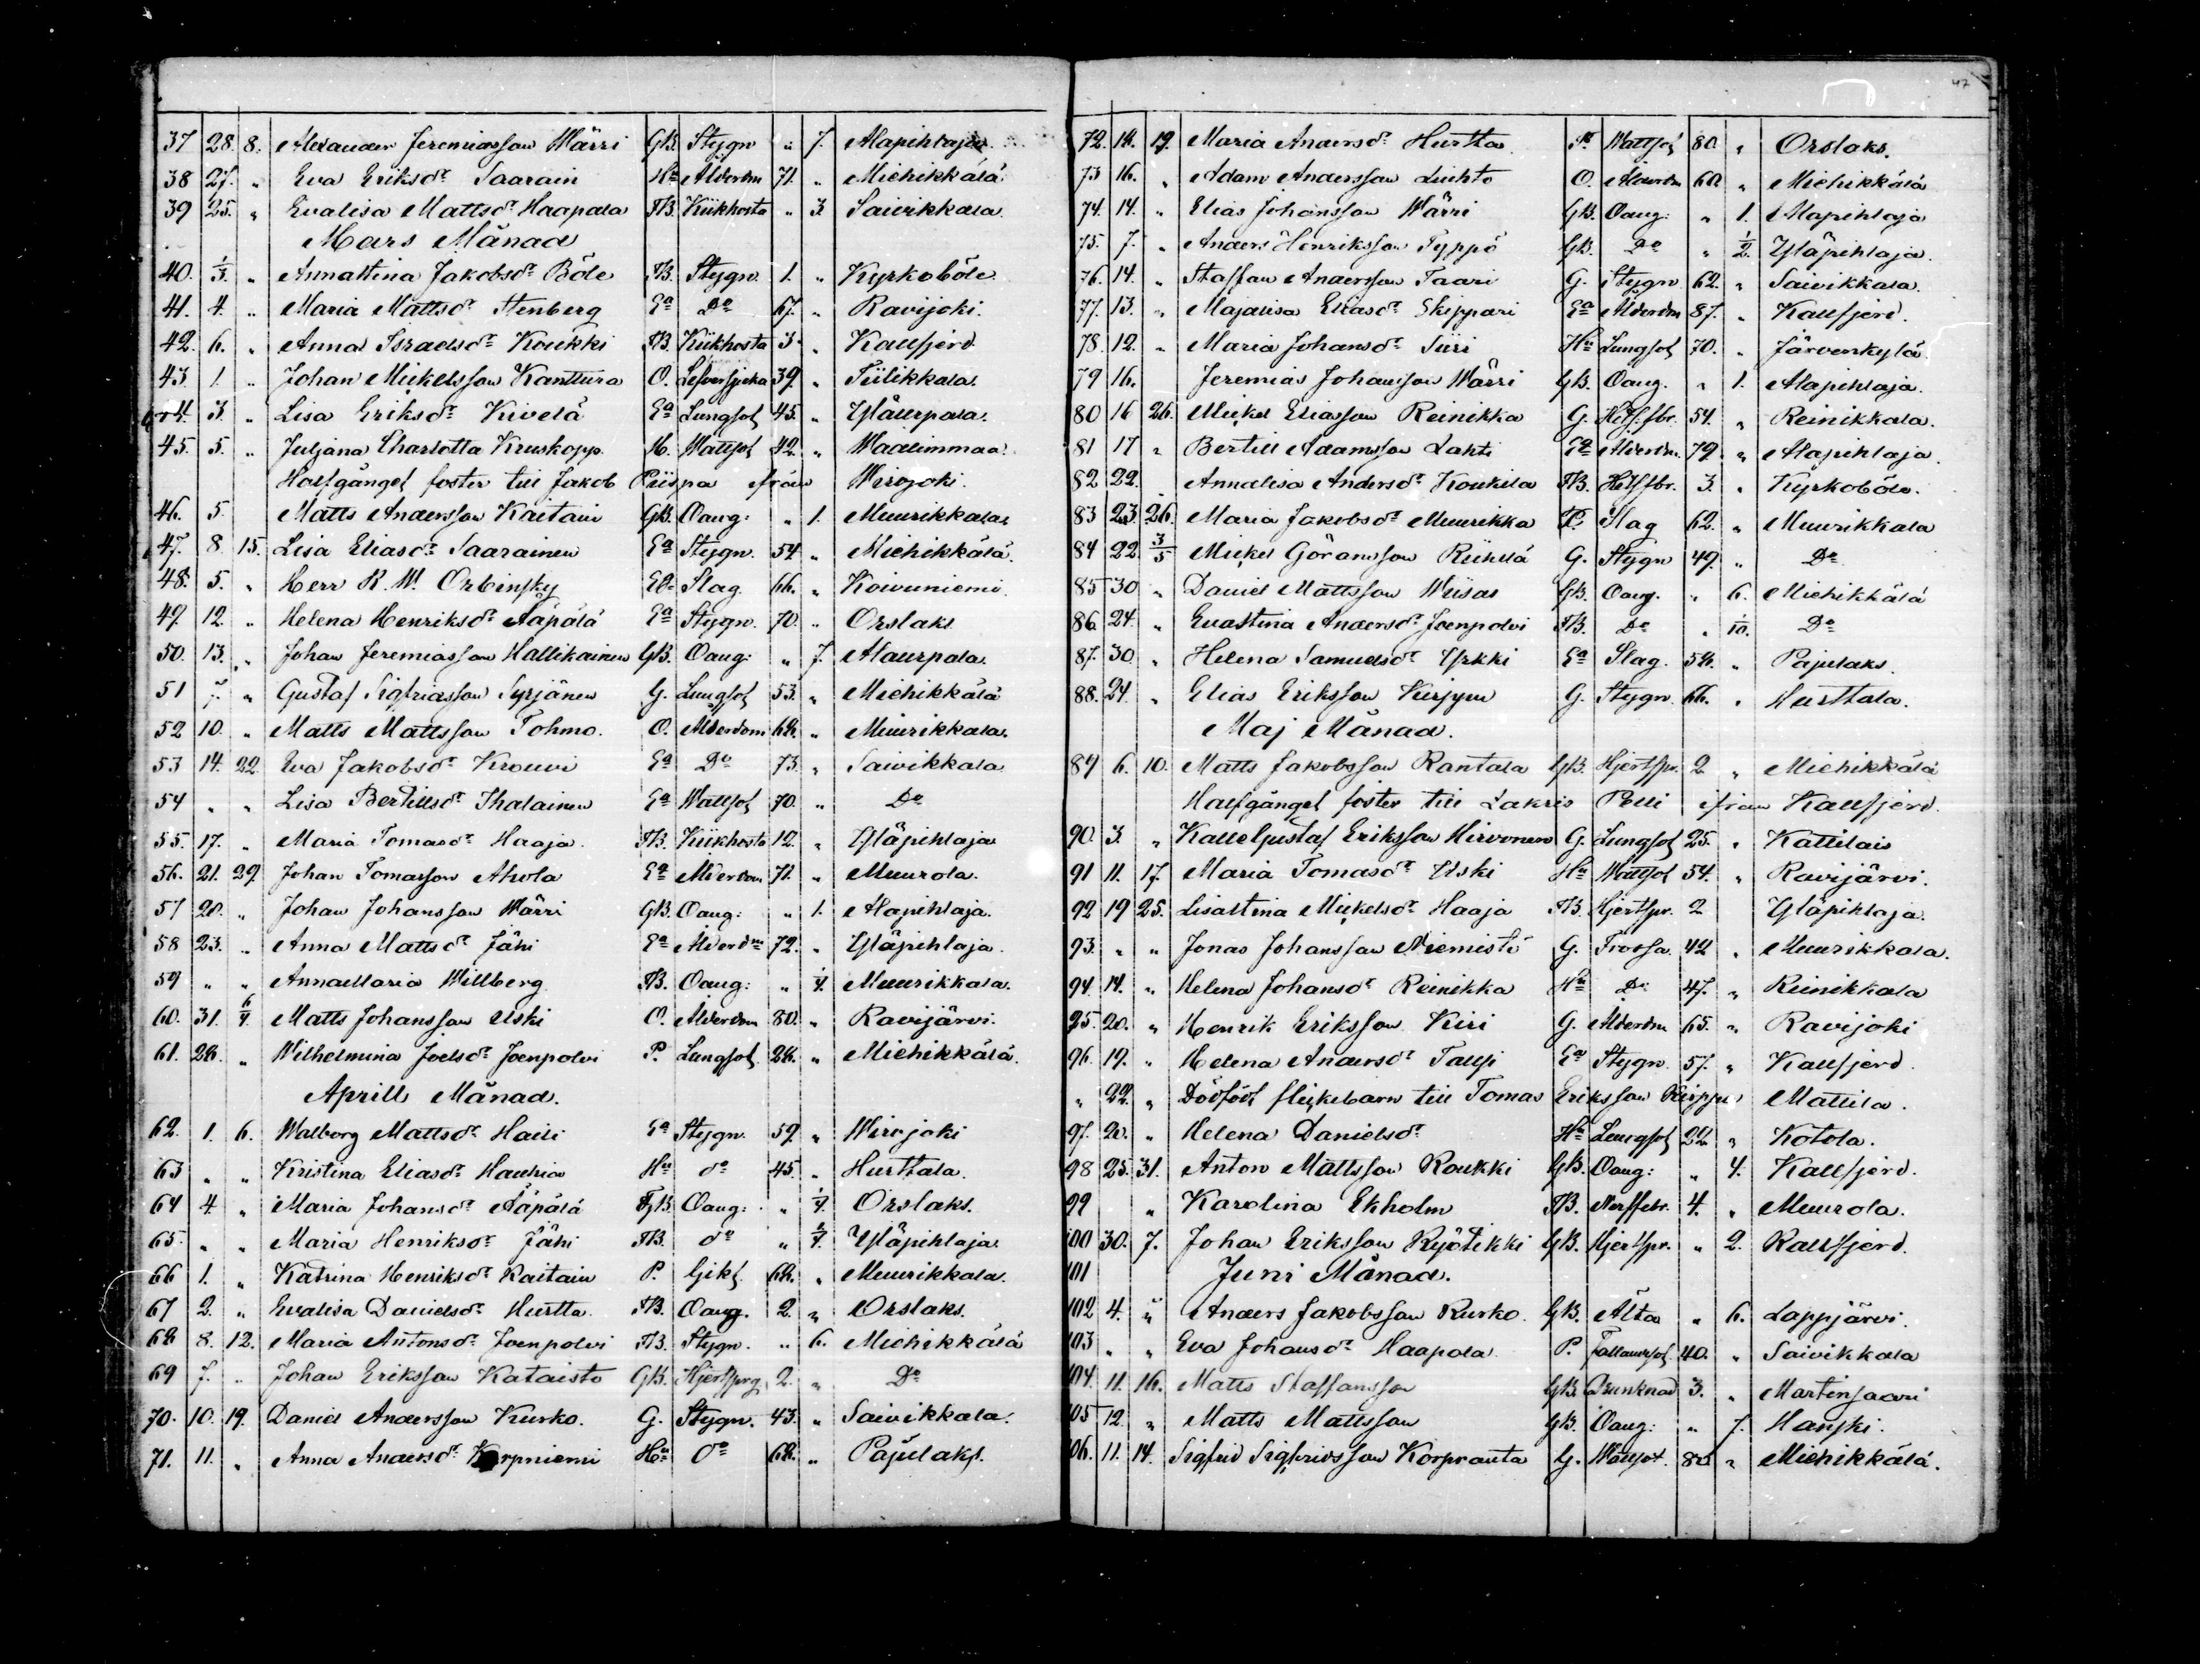 47
37 28. 8. Alexander Jeremiasson Wärri GB. Stygn „ 7. Alapihlaja
38 27. „ Eva Eriksdr Saarain Ha Ålderdm 71. „ Miehikkälä
39 25. „ Evalisa Mattsdr Haapala FB. Kikhosta „ 3. Saivikkala
Mars Månad
40. 1/3. „ Annastina Jakobsdr Böle FB. Stygn. 1. „ Kyrkoböle
41. 4. „ Maria Mattsdr Stenberg Ea Do 67. „ Ravijoki.
42. 6. „ Anna Israelsdr Koukki FB. Kikhosta 3. „ Kallfjerd
43 1. „ Johan Mickelsson Kanttura O. Lefversjuka 39. „ Tiilikkala.
44. 3. „ Lisa Eriksdr Kivelä Ea Lungsot 45. „ Yläurpala.
45. 5. „ Juljana Charlotta Kruskopp. H. Wattsot 42. „ Waalimmaa.
Halfgånget foster till Jakob Piispa ifrån Wirojoki.
46. 5. Matts Andersson Kaitain GB. Oang: „ 1. Muurikkala
47. 8 15. Lisa Eliasdr Saarainen Ea Stygn. 54 „ Miehikkälä
48. 5. „ Herr R. W. Orbinsky Slag. 66. „ Koivuniemi.
49. 12. „ Helena Henriksdr Ääpälä Ea Stygn. 70. „ Orslaks
50. 13. „ Johan Jeremiasson Hallikainen GB. Oang: „ 7. Alaurpala.
51 7. „ Gustaf Sigfridsson Syrjänen G. Lungsot 53. „ Miehikkälä
52 10. „ Matts Mattsson Tohmo. O. Ålderdom 68. „ Muurikkala.
53 14. 22. Eva Jakobsdr Krouvi Ea Do 73. „ Saivikkala
54 „ „ Lisa Bertillsdr Ihalainen Ea Wattsot 70. „ Do
55. 17. „ Maria Tomasdr Haaja. FB. Kikhosta 12. „ Yläpihlaja
56. 21. 29. Johan Tomasson Ahola Ea Ålderdom 71. „ Muurola.
57 20. „ Johan Johansson Wärri GB. Oang: „ 1. Alapihlaja.
58 23. „ Anna Mattsdr Jähi Ea Ålderdm 72. „ Yläpihlaja.
59 „ „ Anna Maria Willberg FB. Oang: „ 1/4. Muurikkala.
60. 31. 6/4. Matts Johansson Uski O. Ålderdm 80. „ Ravijärvi.
61. 28. „ Wilhelmina Joelsdr Joenpolvi P. Lungsot 28. „ Miehikkälä.
Aprill Månad.
62. 1. 6. Walborg Mattsdr Haili Ea Stygn. 59. „ Wirojoki
63 „ „ Kristina Eliasdr Hauhia Hu do 45. „ Hurttala.
64 4. „ Maria Johansdr Ääpälä FB. Oang: „ 1/4. Orslaks.
65. „ „ Maria Henriksdr Jähi FB. do „ Yläpihlaja
66 1. „ Katrina Henriksdr Kaitain P. Gikt 68. „ Muurikkala.
67 2. „ Evalisa Danielsdr Hurtta. FB. Oang. 2. „ Orslaks.
68 8. 12. Maria Antonsdr Joenpolvi FB. Stygn. „ 6. Miehikkälä
69 7. „ Johan Eriksson Kataisto GB. Hjertsprg 2. „ Do
70. 10. 19. Daniel Andersson Kurko. G. Stygn. 43. „ Saivikkala.
71. 11. „ Anna Andersdr Korpniemi Ha do 68. „ Pajulaks.
72. 18. 19. Maria Andersdr Hurtta. Wattsot 80. „ Orslaks.
73 16. „ Adam Andersson Luihto O. Ålderdm 60. „ Miehikkälä
74. 14. „ Elias Johansson Wärri GB. Oang: „ 1. Alapihlaja
75. 7. „ Anders Henriksson Typpö GB. Do „ 1/2. Yläpihlaja.
76. 14. „ Staffan Andersson Taari G. Stygn. 62. „ Saivikkala.
77. 13. „ Majalisa Eliasdr Skippari Ea Ålderdm 87. „ Kallfjerd.
78. 12. „ Maria Johansdr Siiri Hu Lungsot 70. „ Järvenkylä
79 16. Jeremias Johansson Wärri GB. Oang. „ 1. Alapihlaja.
80 16 26. Mickel Eliasson Reinikka G. Hetsfbr. 54. „ Reinikkala.
81 17 „ Bertill Adamsson Lahti Ea Ålderdm. 79 „ Alapihlaja.
82 22. Annalisa Andersdr Koukila FB. Hetsfbr. 3. „ Kyrkoböle.
83 23. 26. Maria Jakobsdr Muurikka Slag 62. „ Muurikkala
84 22. 3/5 Mickel Göransson Riihelä G. Stygn 49. „ Do
85 30 „ Daniel Mattsson Wiisas GB. Oang. „ 6. Miehikkälä
86. 24. „ Evastina Andersdr Joenpolvi FB. Do „ 1/10. Do
87. 30. „ Helena Samuelsdr Yrkki Ea Slag. 58. „ Pajulaks.
88. 24. „ Elias Eriksson G. Stygn. 66. „ Hurttala.
Maj Månad.
89 6. 10. Matts Jakobsson Rantala GB. Hjertspr. 2 „ Miehikkälä
Halfgånget foster till Zakris Pelli ifrån Kallfjerd.
90. 3. „ Kalle Gustaf Eriksson Hirvonen G. Lungsot 25. „ Kattilais
91 11. 17. Maria Tomasdr Uski Ha Wattsot 54. „ Ravijärvi.
92 19 25. Lisastina Mickelsdr Haaja FB. Hjertspr. 2 Yläpihlaja.
93. „ „ Jonas Johansson Niemistö G. Trossa. 42 „ Muurikkala.
94 14. „ Helena Johansdr Reinikka Ha Do 47. „ Reinikkala
95. 20. „ Henrik Eriksson Kiri G. Ålderdm 65. „ Ravijoki
96. 19. „ Helena Andersdr Talsi Ea Stygn. 57. „ Kallfjerd.
„ 22. „ Dödfödt flickebarn till Tomas Eriksson Mattila.
97. 20. „ Helena Danielsdr Ha Lungsot 22 „ Kotola.
98 25. 31. Anton Mattsson Koukki GB. Oang: „ 4. Kallfjerd.
99 „ Karolina Ekholm FB. Nerffebr. 4. „ Muurola.
100 30. 7. Johan Eriksson Kyötikki GB. Hjertspr. „ 2. Kallfjerd.
101 Juni Månad.
102 4. „ Anders Jakobsson Kurko. GB. Älta „ 6. Lappjärvi.
103 „ „ Eva Johansdr Haapala P. Fallandsot 40. „ Saivikkala
104. 11. 16. Matts Staffansson GB. Drunknad 3. „ Martinsaari
105 12. „ Matts Mattsson GB. Oang: „ 7. Hanski.
106. 11. 14. Sigfrid Sigfridsson Korpranta G. Wattsot. 80 „ Miehikkälä.